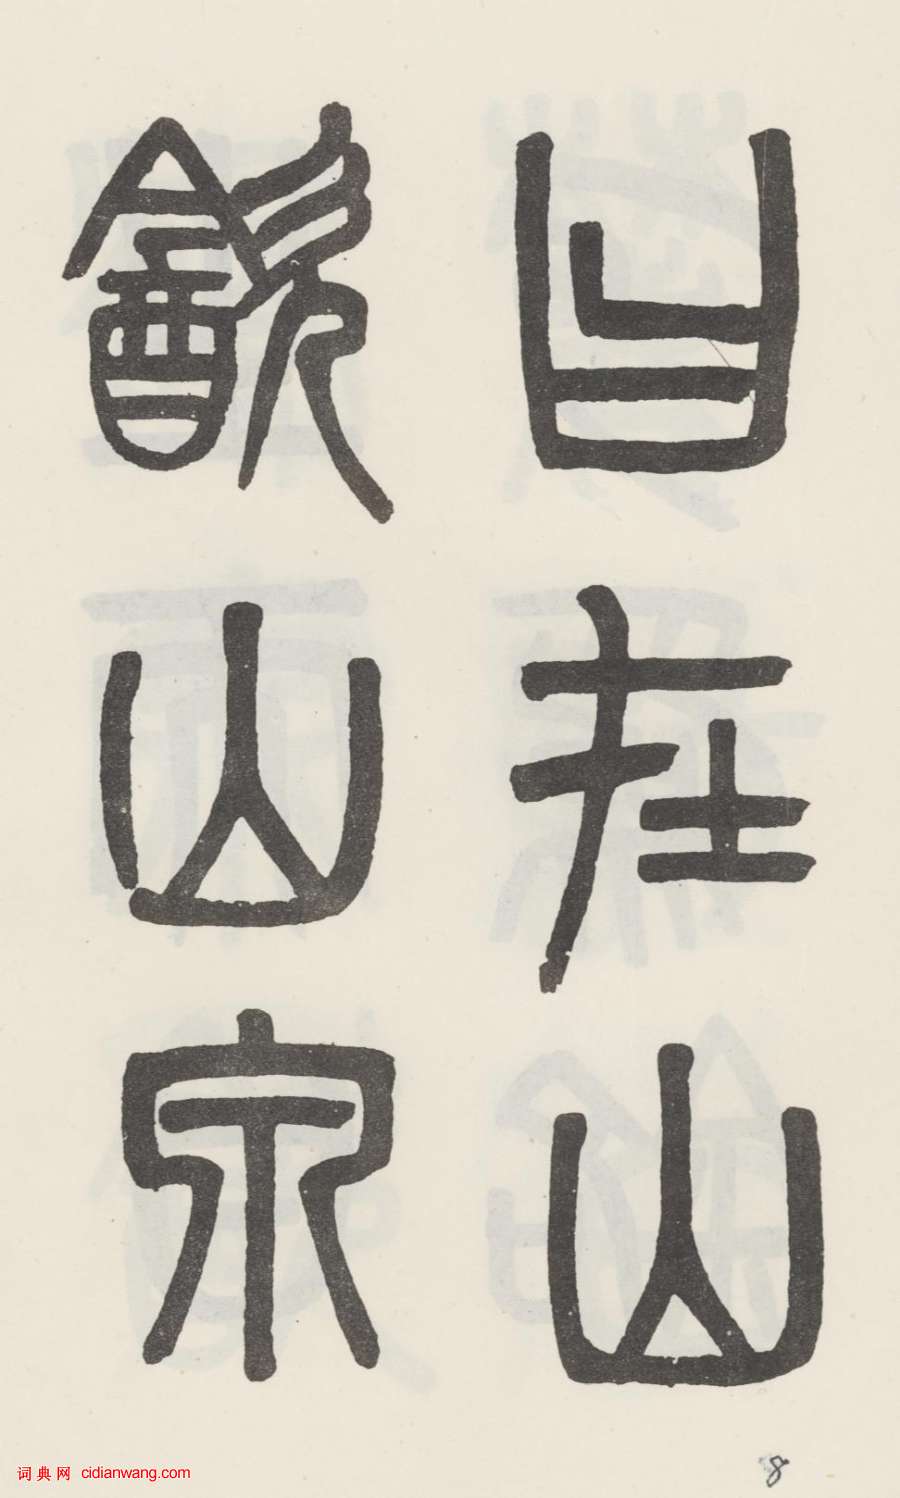 曰在山
飲山泉
词典网 cidianwang.com
8